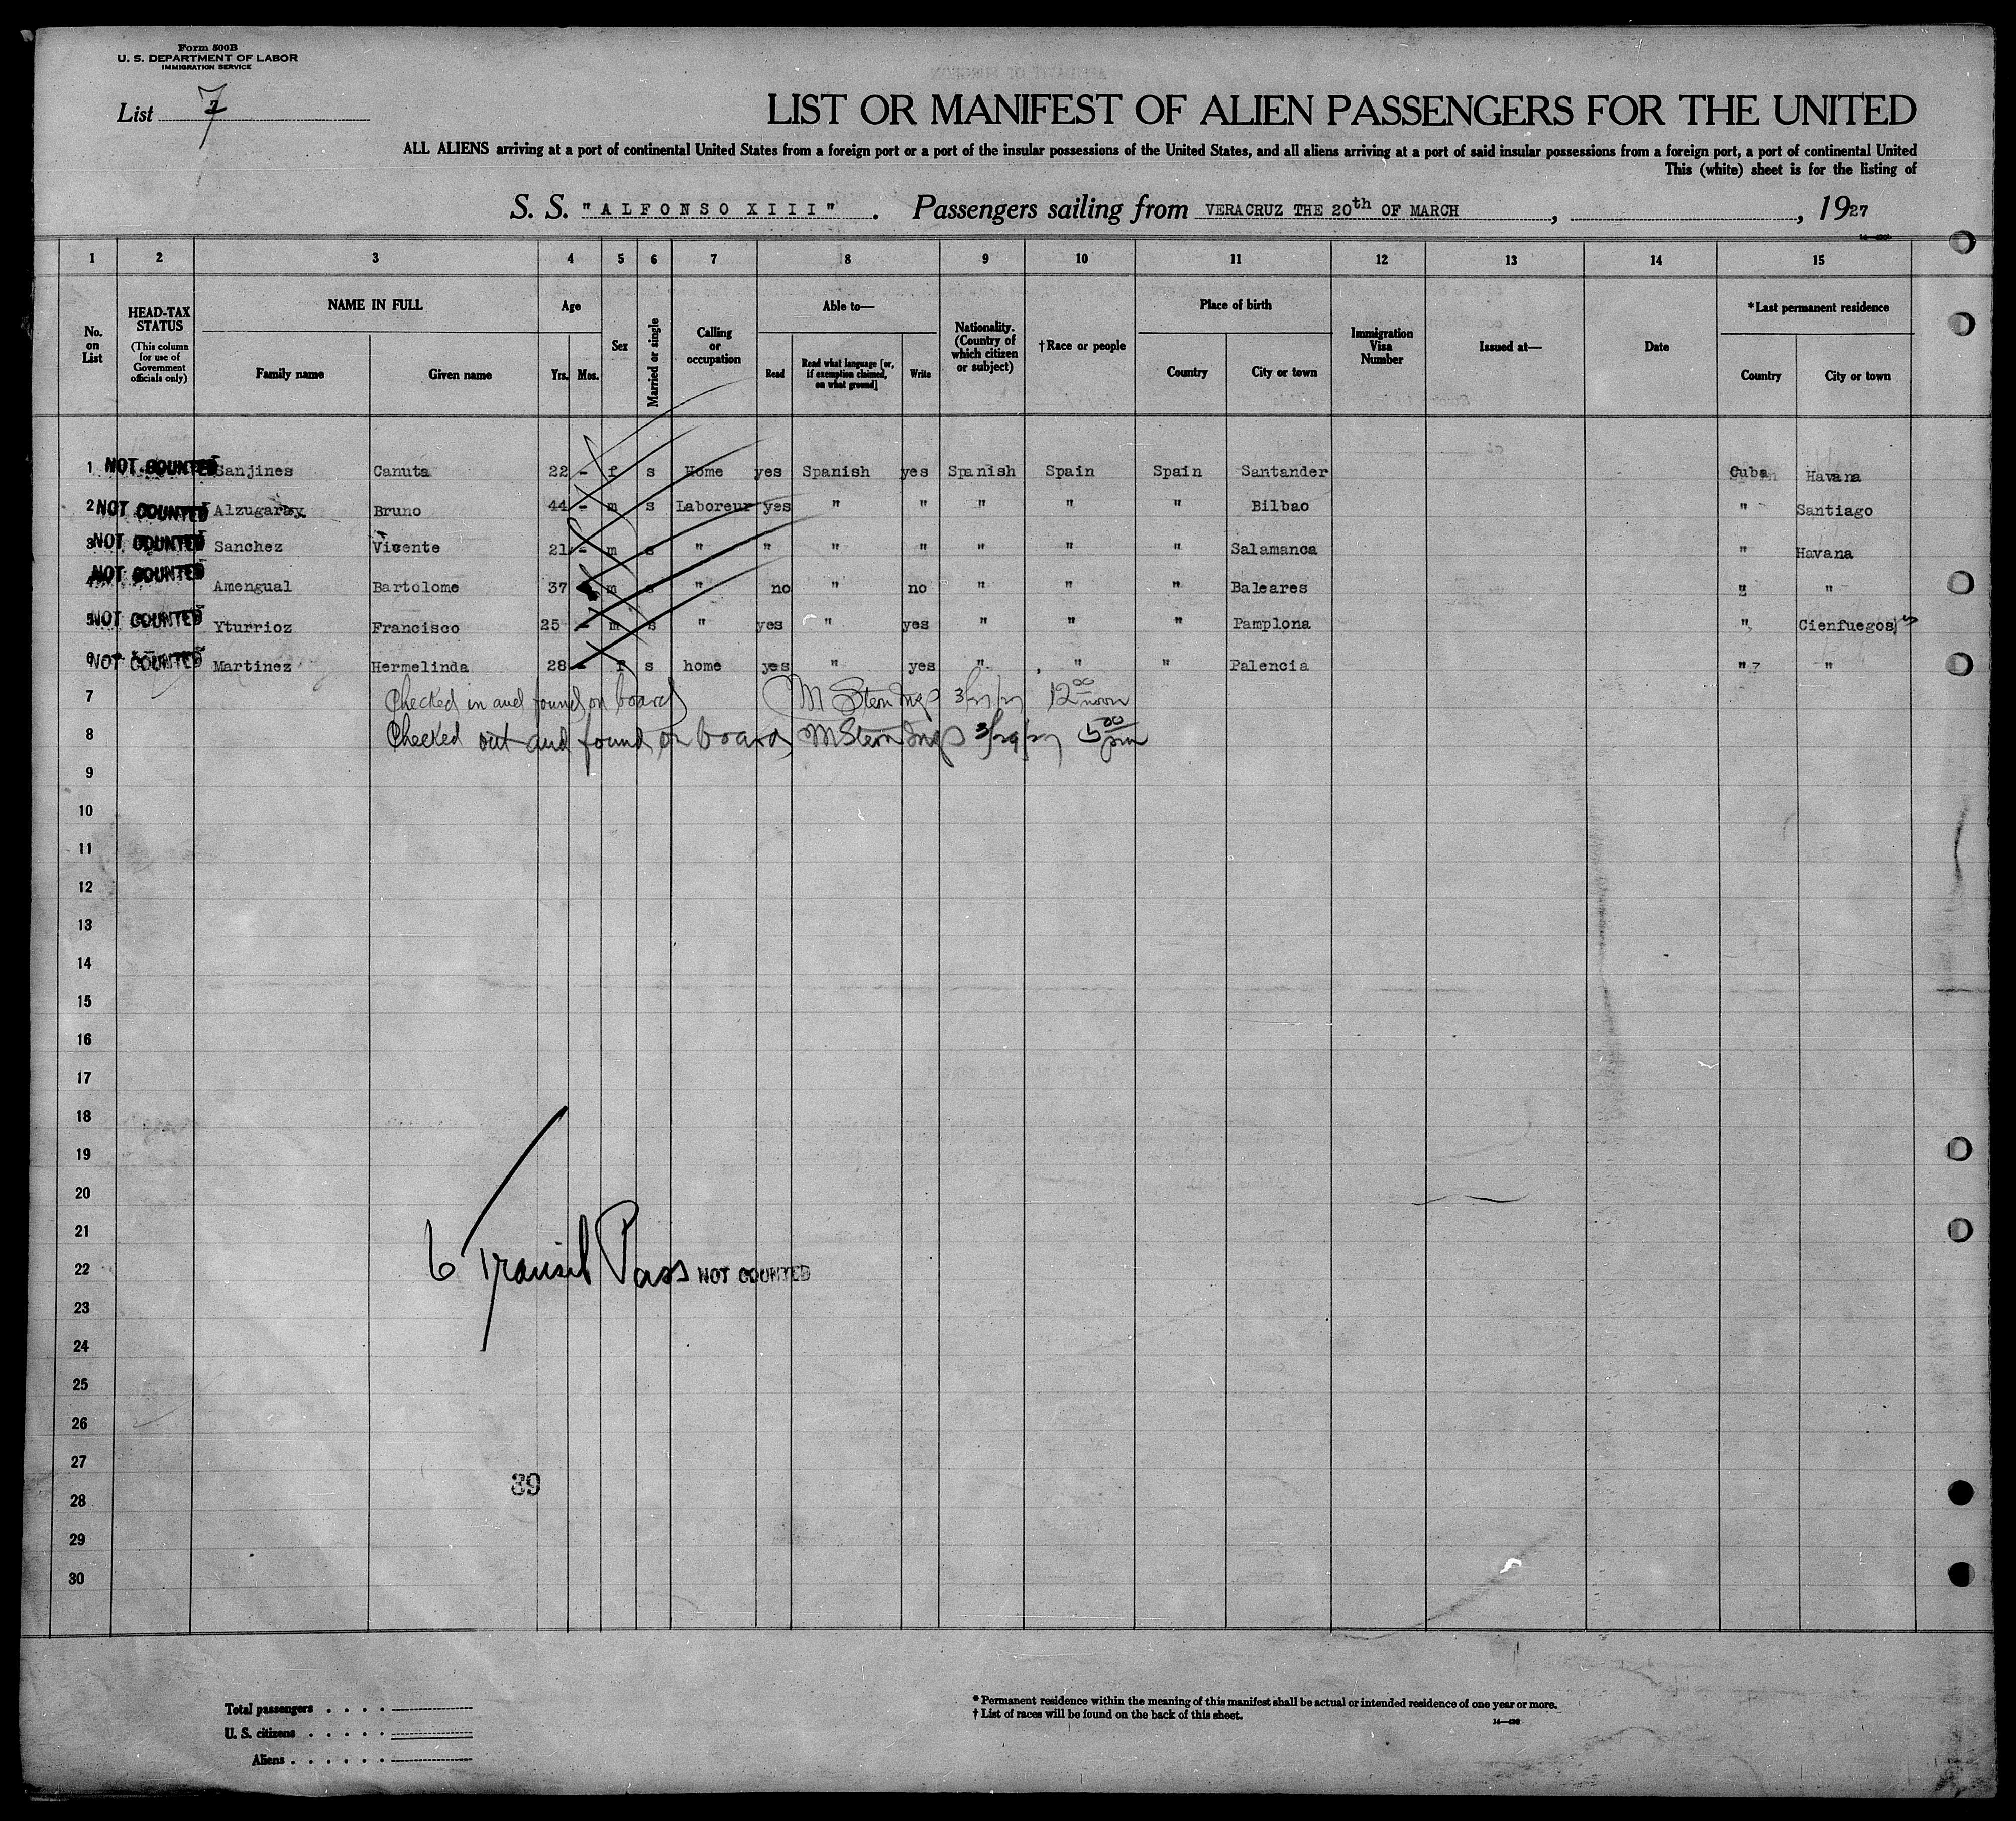 Form 500B
U. S. DEPARTMENT OF LABOR
IMMIGRATION SERVICE
List 7
LIST OR MANIFEST OF ALIEN PASSENGERS FOR THE UNITED
ALL ALIENS arriving at a port of continental United States from a foreign port or a port of the insular possessions of the United States, and all aliens arriving at a port of said insular possessions from a foreign port, a port of continental United
This (white) sheet is for the listing of
S. S. "ALFONSO XIII". Passengers sailing from VERACRUZ THE 20th OF MARCH, , 1927
1 2 3 4 5 6 7 8 9 10 11 12 13 14 15
No. on List
HEAD-TAX STATUS
(This column for use of Government officials only)
NAME IN FULL
Family name Given name
Age
Yrs. Mos.
Sex
Married or single
Calling or occupation
Able to—
Read Read what language [or, if exemption claimed, on what ground] Write
Nationality. (Country of which citizen or subject)
†Race or people
Place of birth
Country City or town
Immigration Visa Number
Issued at—
Date
*Last permanent residence
Country City or town
1 NOT COUNTED Sanjines Canuta 22 - f s Home yes Spanish yes Spanish Spain Spain Santander Cuba Havana
2 NOT COUNTED Alzugaray Bruno 44 - m s Laboreur yes " " " " " Bilbao " Santiago
3 NOT COUNTED Sanchez Vicente 21 - m s " " " " " " " Salamanca " Havana
4 NOT COUNTED Amengual Bartolome 37 m s " no " no " " " Baleares " "
5 NOT COUNTED Yturrioz Francisco 25 - m s " yes " yes " " " Pamplona " Cienfuegos
6 NOT COUNTED Martinez Hermelinda 28 - f s home yes " yes " " " Palencia " "
7 Checked in and found on board M Stern Insp 3/27/27 12 00 noon
8 Checked out and found on board M Stern Insp 3/29/27 5 00 pm
9
10
11
12
13
14
15
16
17
18
19
20
21
22 6 Transit Pass NOT COUNTED
23
24
25
26
27
39
28
29
30
Total passengers . . . .
U. S. citizens . . . . .
Aliens . . . . . .
* Permanent residence within the meaning of this manifest shall be actual or intended residence of one year or more.
† List of races will be found on the back of this sheet.